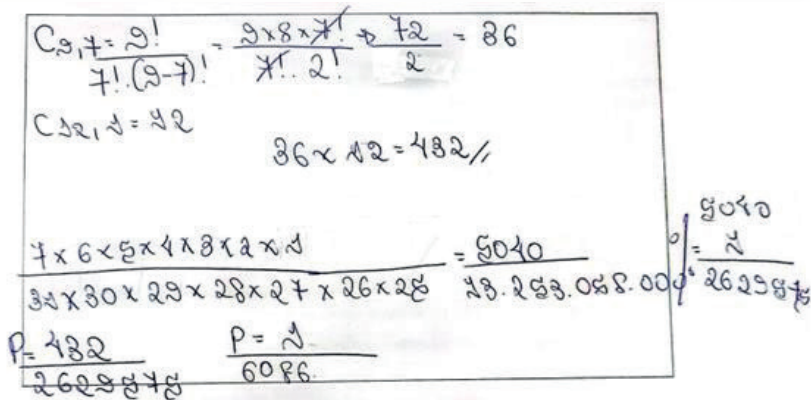 C9,7 = 9! / 7!.(9-7)! = 9x8x7! / 7!.2! → 72 / 2 = 36
C12,1 = 12
36 x 12 = 432//
7x6x5x4x3x2x1 / 31x30x29x28x27x26x25 = 5040 / 13.253.058.000 = 5040 1 / 2629575
P = 432 / 2629575 P = 1 / 6086